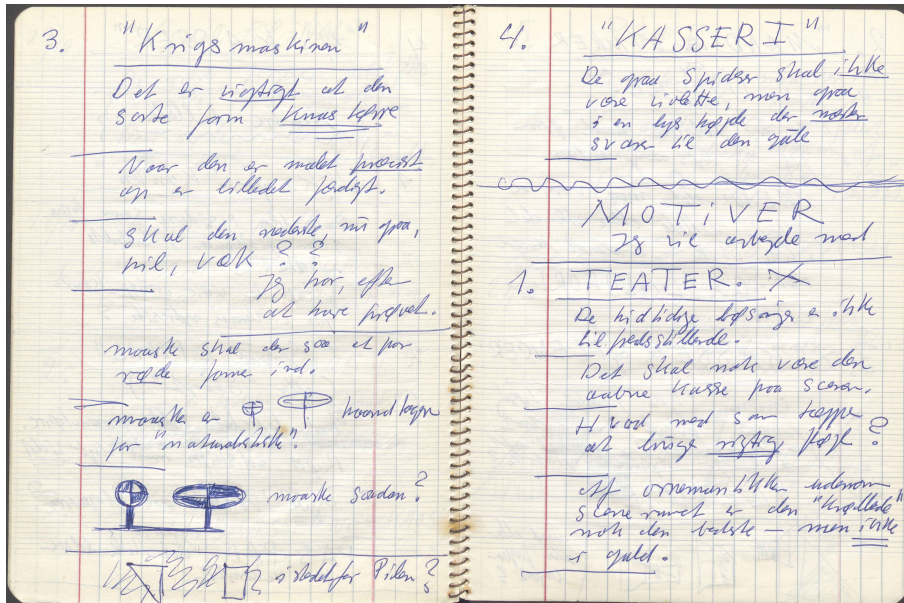 3. "Krigsmaskinen"
Det er vigtigt at den
sorte form
Naar den er malet præcist
op er billedet færdigt.
skal den nederste, nu graa,
pil, væk ? ?
Jeg tror, efter
at have prøvet.
maaske skal der saa et par
røde former ind.
maaske er
for "naturalistiske".
maaske saadan?
istedetfor Pilen?
4. "KASSER I"
De graa Spidser skal ikke
være violette, men graa
i en lys højde der næsten
svarer til den gule
MOTIVER
Jeg vil arbejde med
1. TEATER. X
De hidtidige løsninger er ikke
tilfredsstillende.
Det skal nok være den
aabne kasse paa scenen.
Hvad med som tæppe
at bruge rigtig ?
Af ornamentikken udenom
scenerummet er den
nok den bedste – men ikke
i guld.